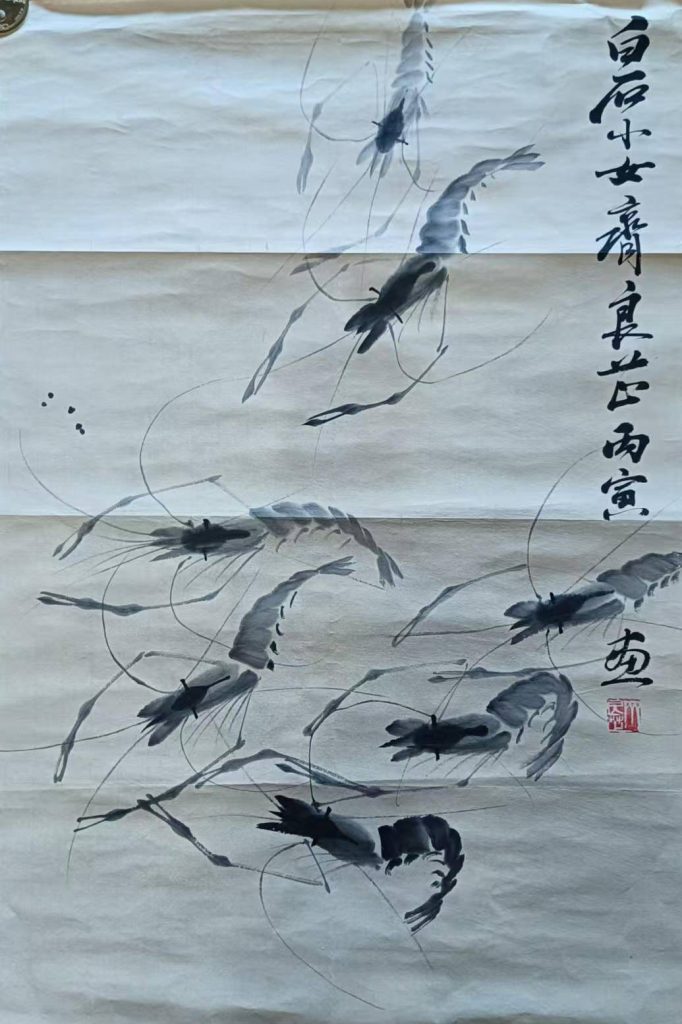 白石小女齊良芷丙寅画